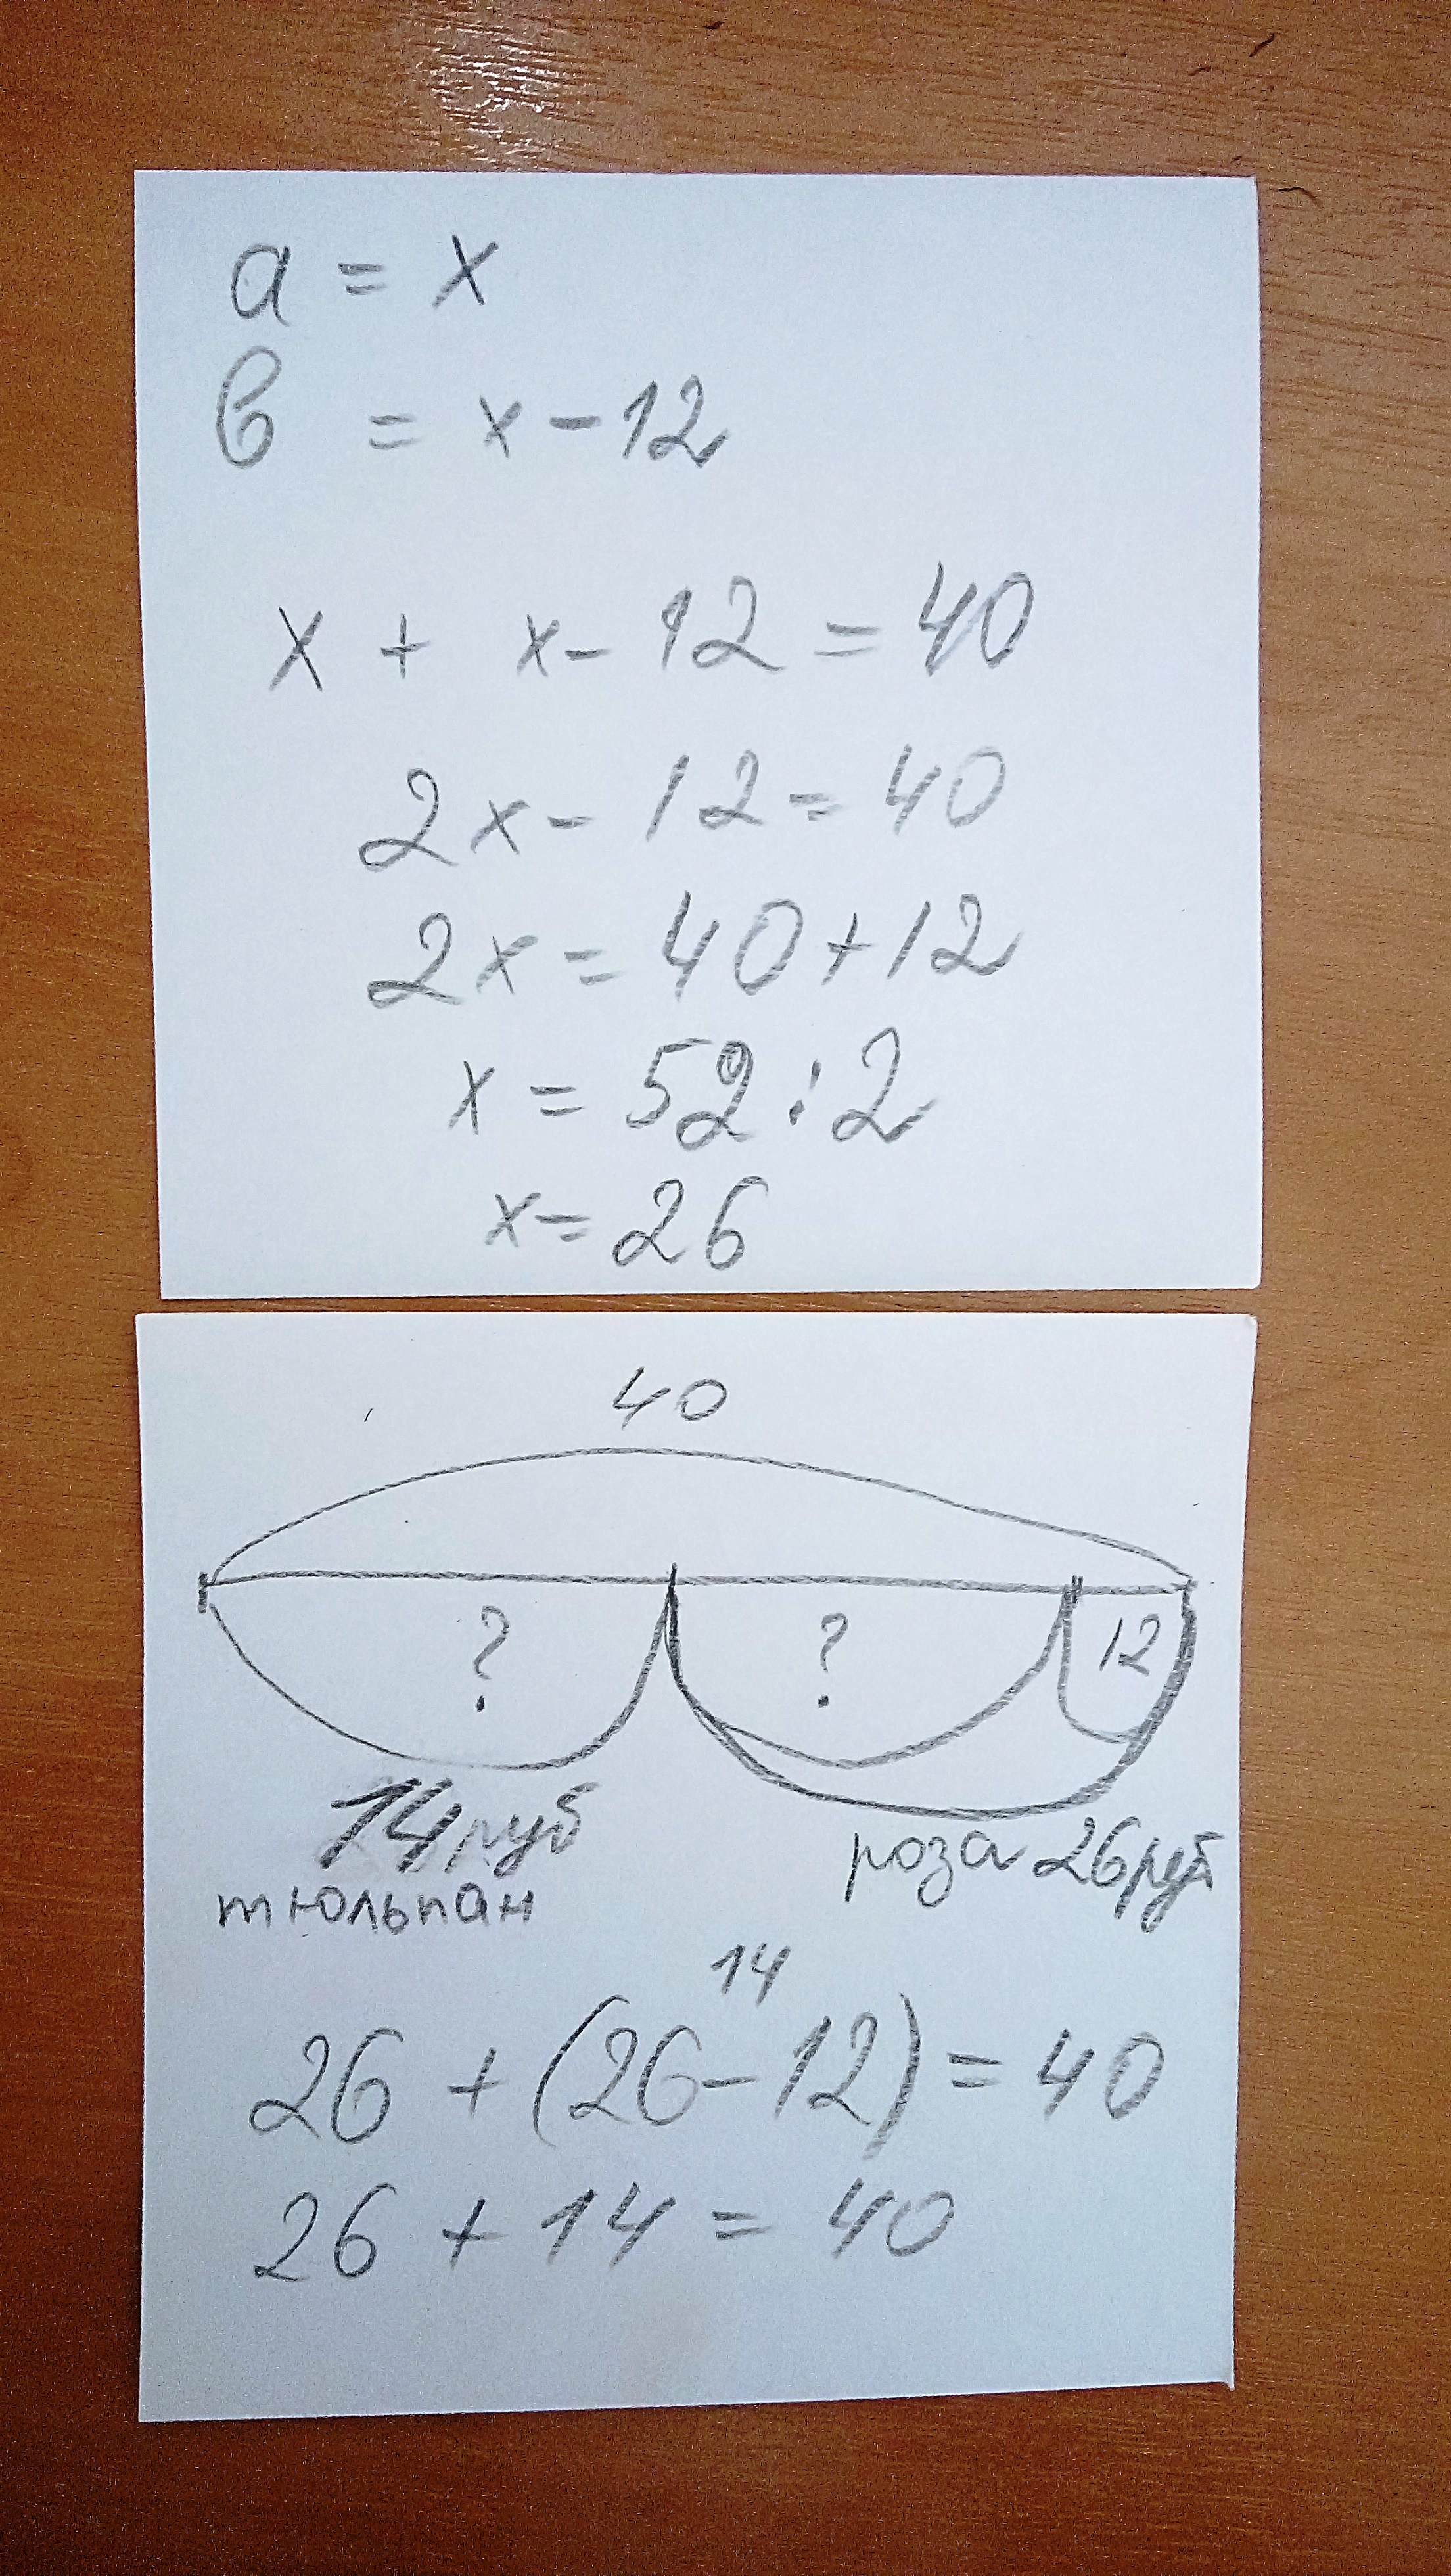 a = x
в = x - 12
x + x - 12 = 40
2x - 12 = 40
2x = 40 + 12
x = 52 : 2
x = 26
40
? ? 12
14 руб роза 26 руб
тюльпан
14
26 + (26 - 12) = 40
26 + 14 = 40